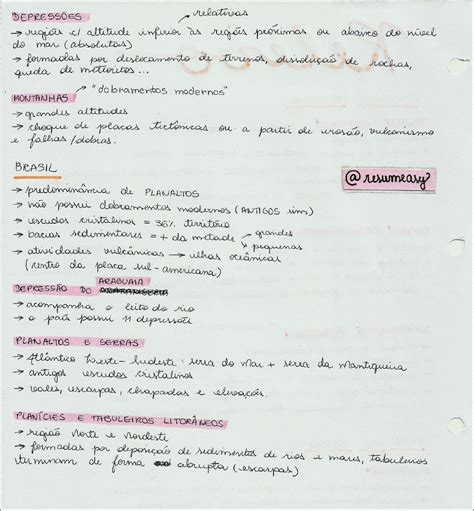 DEPRESSÕES → relativas
→ regiões c/ altitude inferior às regiões próximas ou abaixo do nível
do mar (absolutas)
→ formadas por deslocamento de terrenos, dissolução de rochas,
queda de meteoritos...
MONTANHAS → "dobramentos modernos"
→ grandes altitudes
→ choque de placas tectônicas ou a partir de erosão, vulcanismo
e falhas/dobras.
BRASIL
@resumeasy
→ predominância de PLANALTOS
→ não possui dobramentos modernos (ANTIGOS sim)
→ escudos cristalinos = 36% território
→ bacias sedimentares = + da metade → grandes
→ pequenas
→ atividades vulcânicas → ilhas oceânicas
(centro da placa sul-americana)
DEPRESSÃO DO ARAGUAIA
→ acompanha o leito do rio
→ o país possui 11 depressões
PLANALTOS E SERRAS
→ Atlântico Leste-Sudeste: serra do Mar + serra da Mantiqueira
→ antigos escudos cristalinos
→ vales, escarpas, chapadas e elevações.
PLANÍCIES E TABULEIROS LITORÂNEOS
→ região Norte e Nordeste
→ formadas por deposição de sedimentos de rios e mares, tabuleiros
terminam de forma abrupta (escarpas)